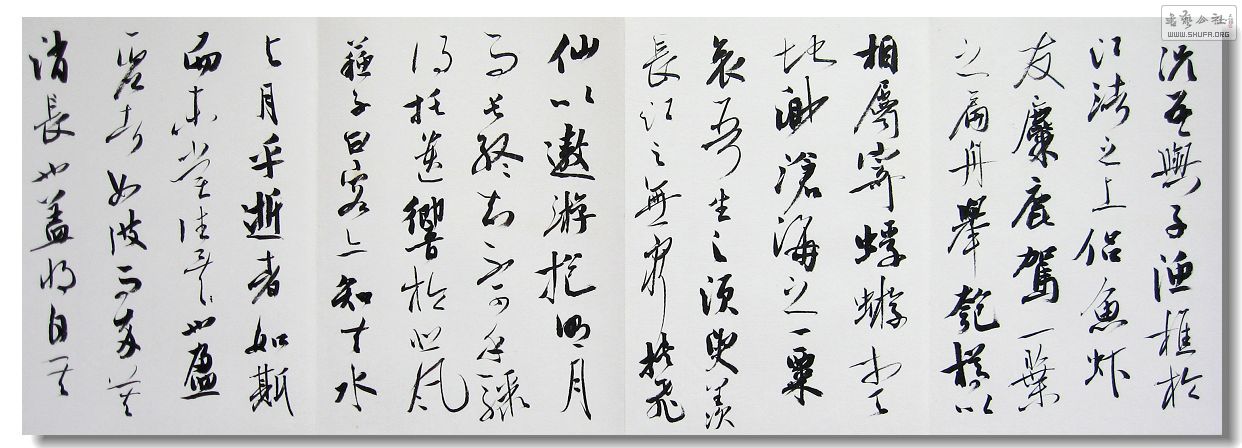 況吾與子漁樵於
江渚之上侶魚虾
友麋鹿駕一葉
之扁舟舉匏樽以
相屬寄蜉蝣於天
地渺滄海之一粟
哀吾生之須臾羨
長江之無窮挾飛
仙以遨游抱明月
而長終知不可乎驟
得托遺響於悲風
蘇子曰客亦知夫水
與月乎逝者如斯
而未嘗往也盈
虛者如彼而卒莫
消長也蓋將自其
書藝公社
WWW.SHUFA.ORG